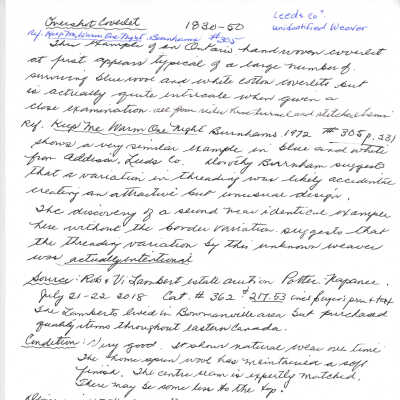 Overshot Coverlet 1830-50 Leeds Co.
Ref. Keep Me Warm One Night, Burnhams #305 unidentified Weaver
This example of an Ontario handwoven coverlet
at first appears typical of a large number of
surviving blue wool and white cotton coverlets but
is actually quite intricate when given a
close examination.
Ref. Keep Me Warm One Night Burnhams 1972 # 305 p. 231
shows a very similar example in blue and white
from Addison, Leeds Co. Dorothy Burnham suggests
that a variation in threading was likely accidental
creating an attractive but unusual design.
The discovery of a second near identical example
here without the border variation suggests that
the threading variation by this unknown weaver
was actually intentional
Source: Rob & Vi Lambert estate auction Potter Napanee.
July 21-22 2018 Cat. # 362 $217.53 incl buyer's prem & tax
The Lamberts lived in Bowmanville area but purchased
quality items throughout eastern Canada.
Condition: Very good. It shows natural wear over time
The home spun wool has maintained a soft
finish. The centre seam is expertly matched.
There may be some loss to the top.